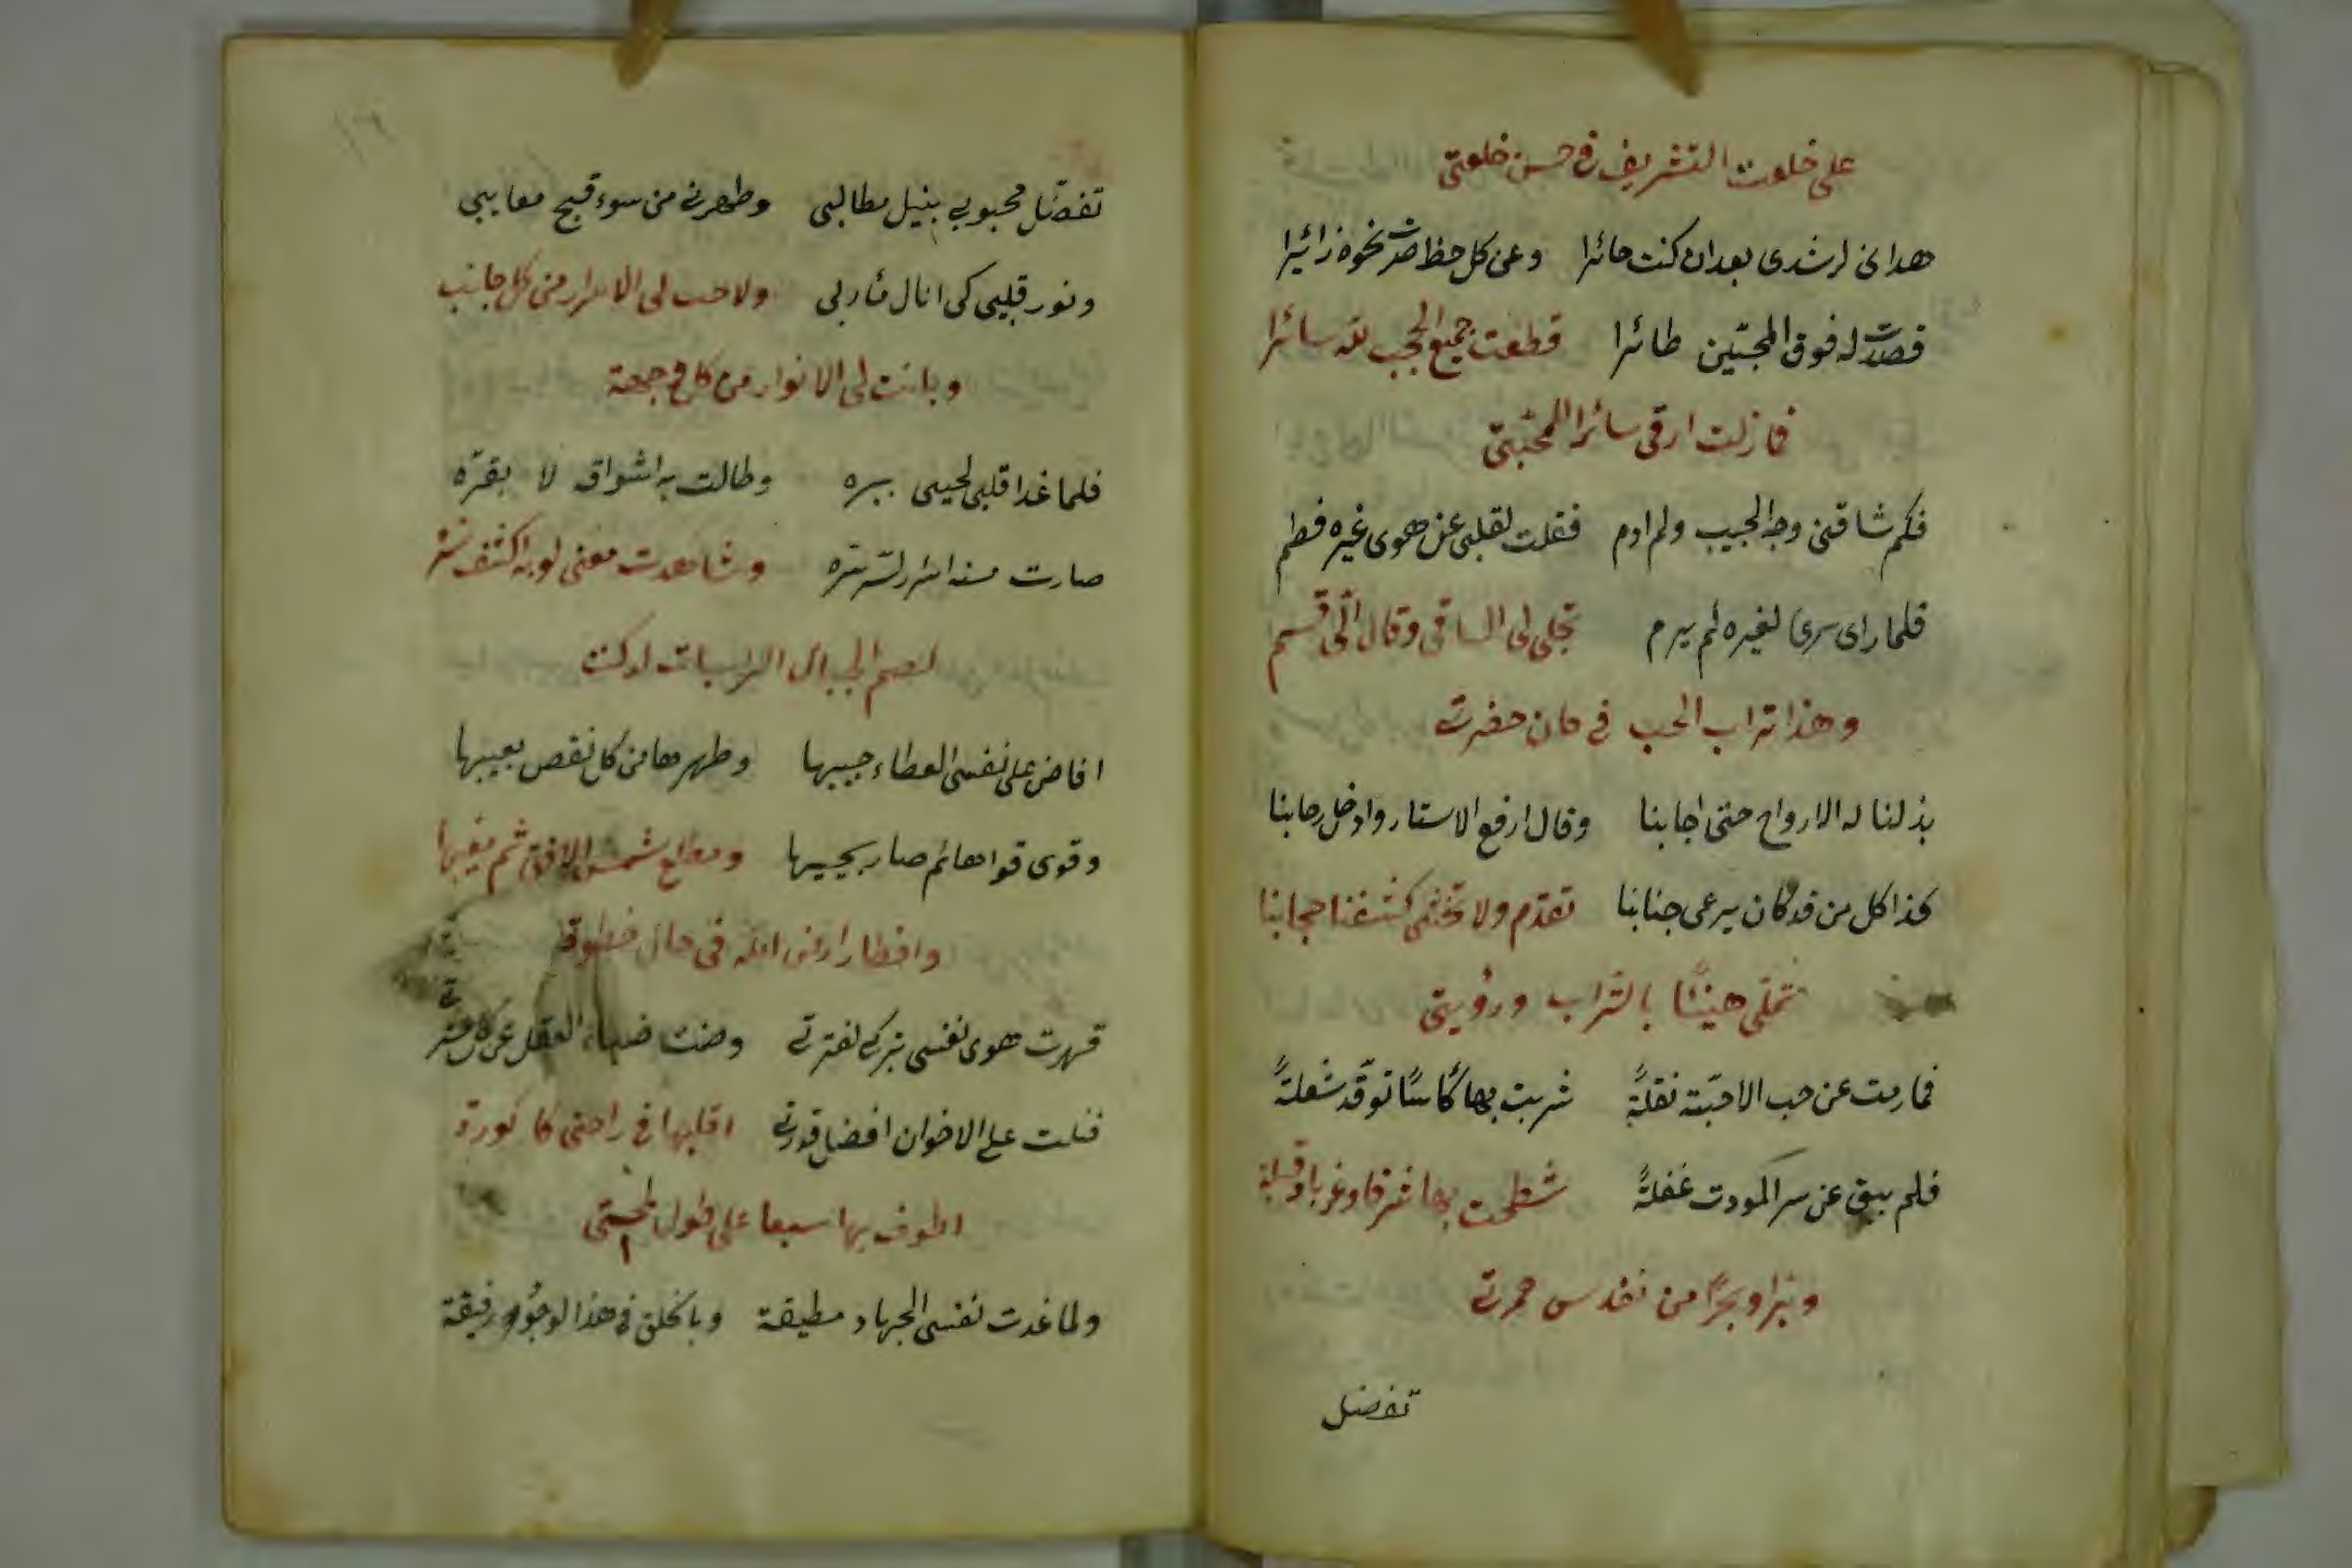 على خلعت التشريف في حسن خلعتي
هداني لرشدي بعد ان كنت حائرا وعن كل حظ صرت نحوه زائيرا
فصرت له فوق المحبين طائرا قطعت جميع الحجب لله سائرا
فما زلت ارقى سائرا لمحبتي
فكم شاقني وجه الحبيب ولم ادم فقلت لقلبي عن هوى غيره فطم
فلما راى سري لغيره لم يرم تجلى لى الساقى وقال الى قسم
وهذا تراب الحب في حان حضرتي
بذلنا له الارواح حتى اجابنا وقال ارفع الاستار وادخل رحابنا
كذا كل من قد كان يرعى جنابنا تقدم ولا تخشى كشفنا حجابنا
تملى هنيئا بالتراب ورؤيتي
فما رمت عن حب الاحبة نقلة شربت بها كاسا توقد شعلة
فلم يبق عن سر المودت غفلة شطحت بها شرقا وغربا وقبلة
وبرا وبحرا من نفدس خمرتي
تفضل
تفضل محبوبي بنيل مطالبى وطهرني من سوء قبيح معايبى
ونور قلبى كى انال مأربى ولاحت لى الاسرار من كل جانب
وبانت لى الانوار من كل وجهة
فلما غدا قلبى لحيى ببره وطالت به اشواق لا بقره
صارت منه اسرار لسره وشاهدت معنى لو بدا كشف سره
لصم الجبال الراسيات لدكت
افاض على نفسى العطاء حبيبها وطهرها من كل نقص بعيبها
وقوى قواها ثم صار يجيبها ومطلع شمس الافق ثم مغيبها
واقطار ارض الله فى حال خطوة
قهرت هوى نفسى بتركى لفترتي وصنت ضياء العقل عن كل
فنلت على الاخوان افضل قدرتي اقلبها في راحتى كا كورة
اطوف بها سبعا على طول لمحتى
ولما غدت نفسى الجهاد مطيقة وبالخلق في هذا الوجود رفيقة